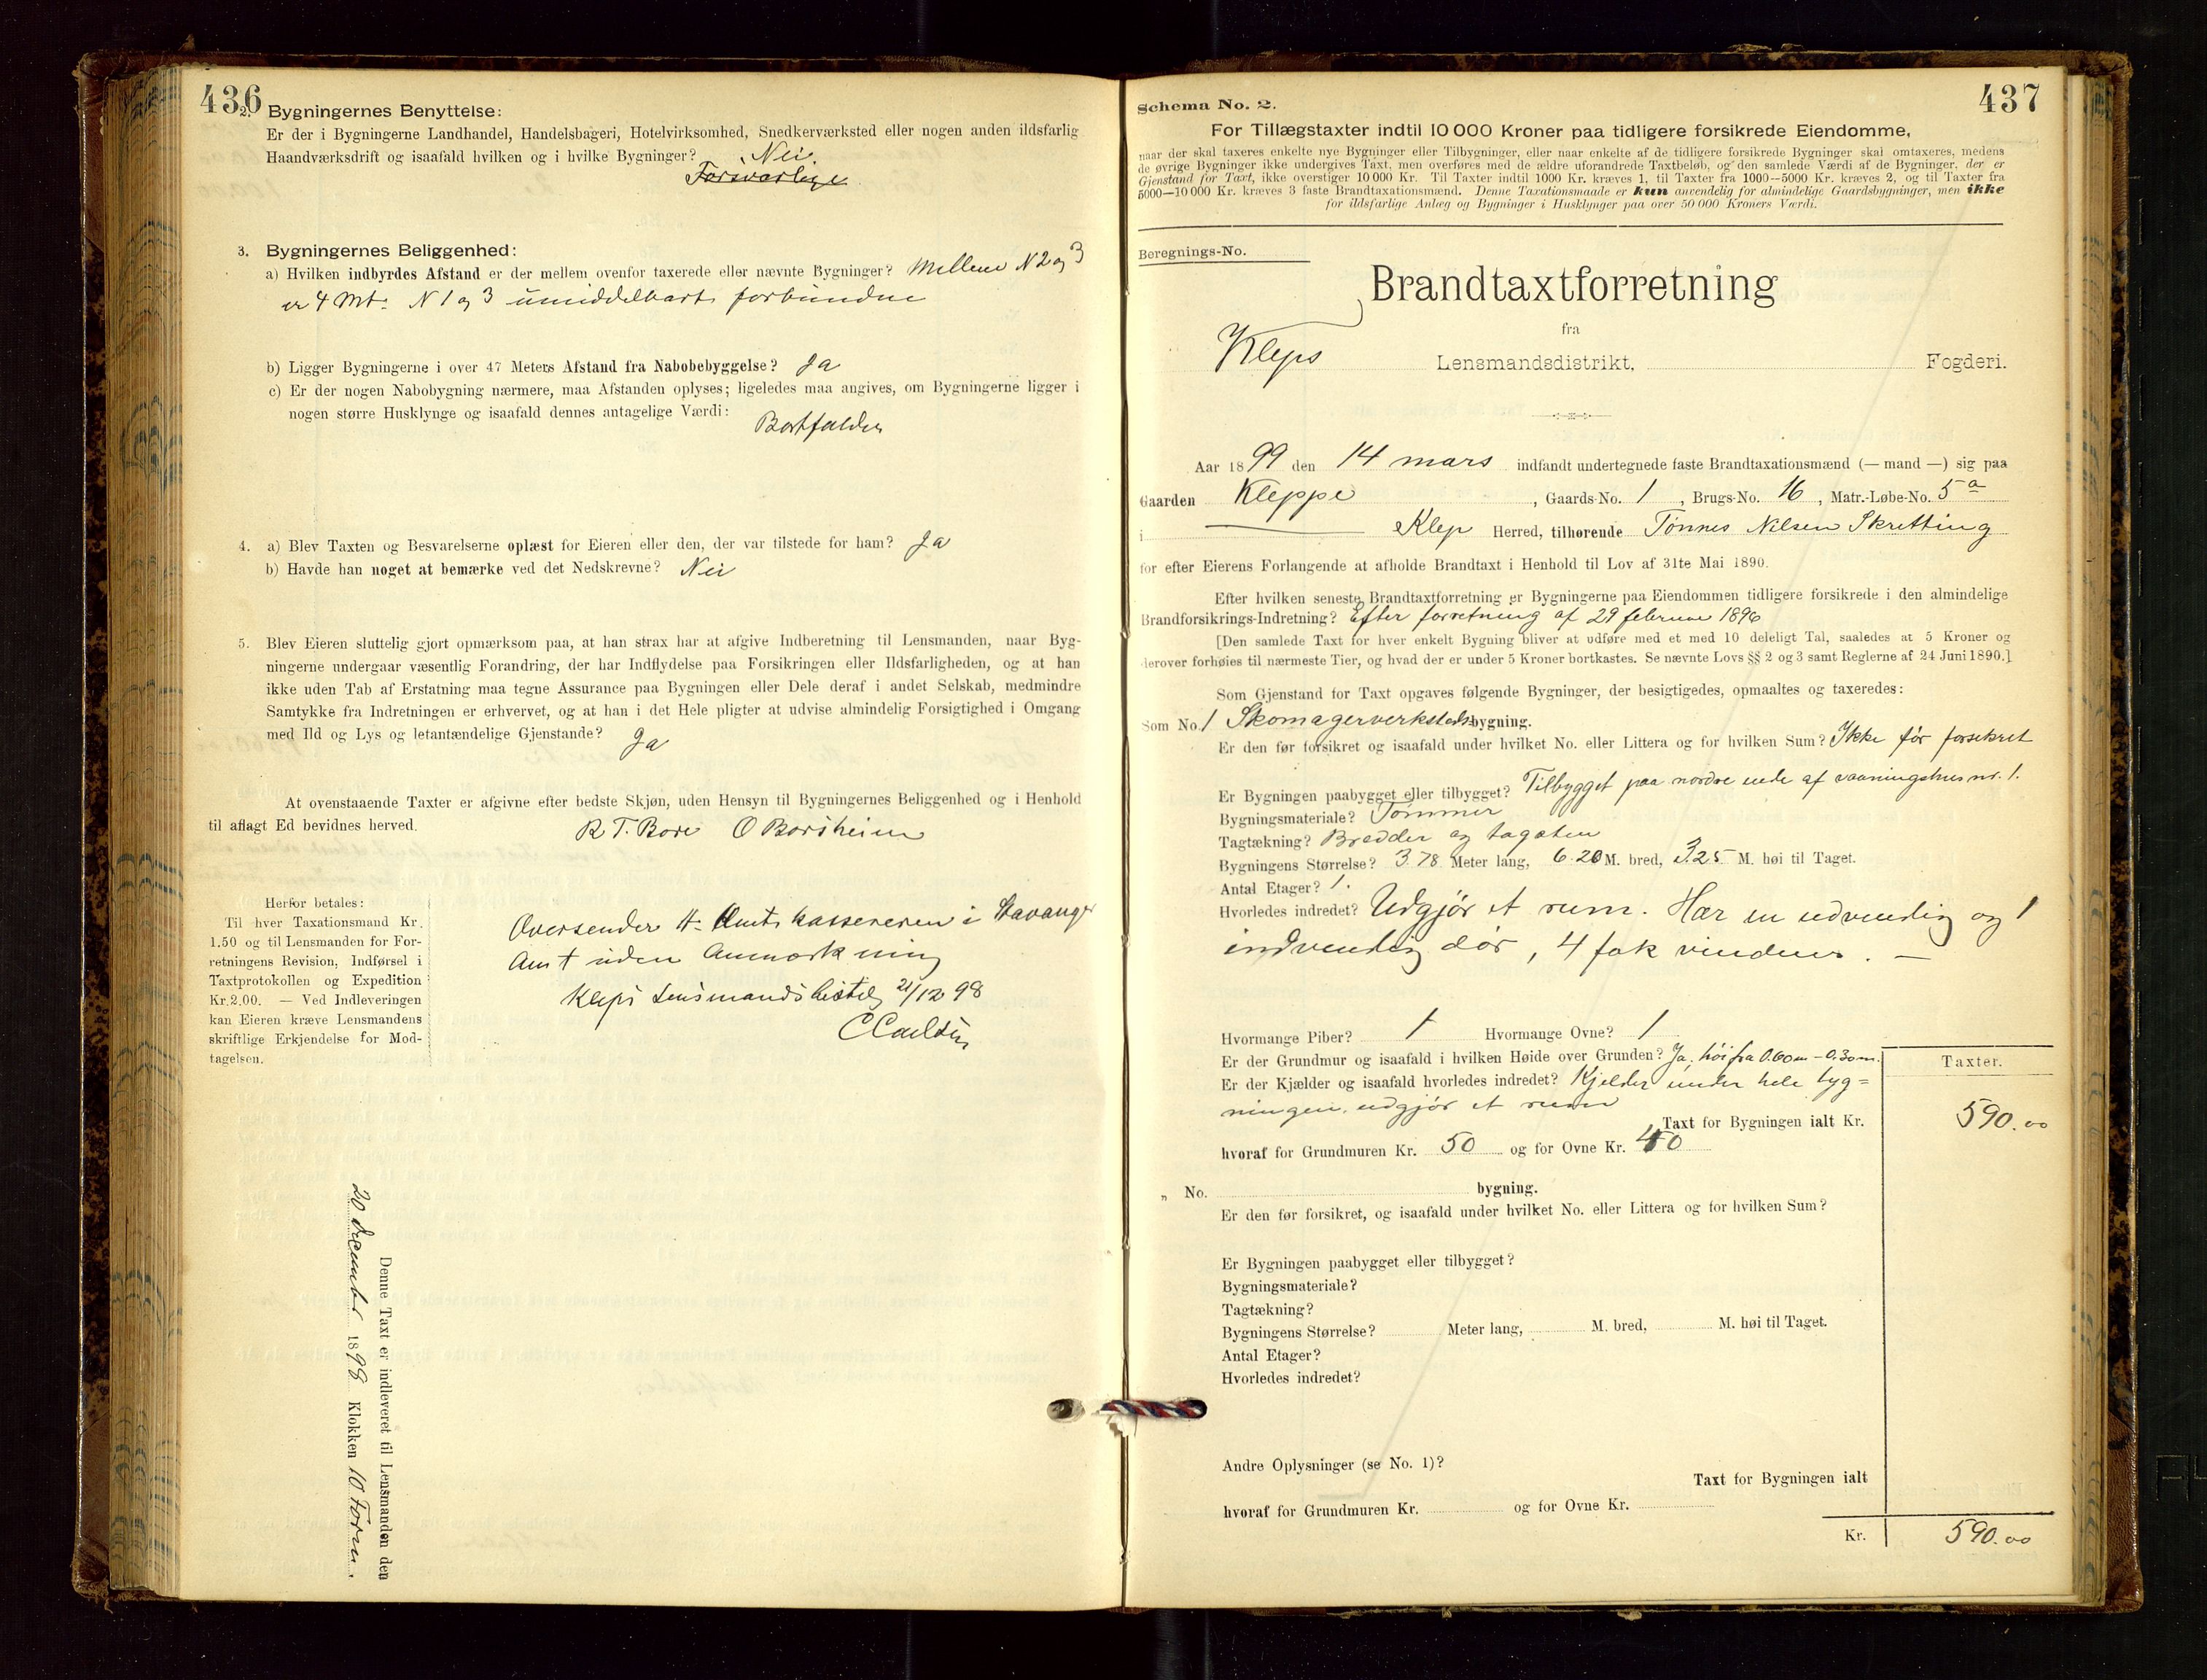 436
2. Bygningernes Benyttelse:
Er der i Bygningerne Landhandel, Handelsbageri, Hotelvirksomhed, Snedkerværksted eller nogen anden ildsfarlig
Haandværksdrift og isaafald hvilken og i hvilke Bygninger? Nei.
Forsvarlige
3. Bygningernes Beliggenhed:
a) Hvilken indbyrdes Afstand er der mellem ovenfor taxerede eller nævnte Bygninger? Mellem N 2 og 3
er 4 Mt. N 1 og 3 umiddelbart forbundne
b) Ligger Bygningerne i over 47 Meters Afstand fra Nabobebyggelse? Ja
c) Er der nogen Nabobygning nærmere, maa Afstanden oplyses; ligeledes maa angives, om Bygningerne ligger i
nogen større Husklynge og isaafald dennes antagelige Værdi:
Bortfalder
4. a) Blev Taxten og Besvarelserne oplæst for Eieren eller den, der var tilstede for ham? Ja
b) Havde han noget at bemærke ved det Nedskrevne? Nei
5. Blev Eieren sluttelig gjort opmærksom paa, at han strax har at afgive Indberetning til Lensmanden, naar Byg-
ningerne undergaar væsentlig Forandring, der har Indflydelse paa Forsikringen eller Ildsfarligheden, og at han
ikke uden Tab af Erstatning maa tegne Assurance paa Bygningen eller Dele deraf i andet Selskab, medmindre
Samtykke fra Indretningen er erhvervet, og at han i det Hele pligter at udvise almindelig Forsigtighed i Omgang
med Ild og Lys og letantændelige Gjenstande? Ja
At ovenstaaende Taxter er afgivne efter bedste Skjøn, uden Hensyn til Bygningernes Beliggenhed og i Henhold
til aflagt Ed bevidnes herved.
R T. Bore O Borsheim
Herfor betales:
Til hver Taxationsmand Kr.
1.50 og til Lensmanden for For-
retningens Revision, Indførsel i
Taxtprotokollen og Expedition
Kr. 2.00. — Ved Indleveringen
kan Eieren kræve Lensmandens
skriftlige Erkjendelse for Mod-
tagelsen.
Oversendes Hr. Amtskassereren i Stavanger
Amt uden Anmærkning
Kleps Lensmandsbestil 21/12 98
Denne Taxt er indleveret til Lensmanden den
20 December 1898 Klokken 10 Form.
437
Schema No. 2.
For Tillægstaxter indtil 10 000 Kroner paa tidligere forsikrede Eiendomme,
naar der skal taxeres enkelte nye Bygninger eller Tilbygninger, eller naar enkelte af de tidligere forsikrede Bygninger skal omtaxeres, medens
de øvrige Bygninger ikke undergives Taxt, men overføres med de ældre uforandrede Taxtbeløb, og den samlede Værdi af de Bygninger, der er
Gjenstand for Taxt, ikke overstiger 10 000 Kr. Til Taxter indtil 1000 Kr. kræves 1, til Taxter fra 1000—5000 Kr. kræves 2, og til Taxter fra
5000—10 000 Kr. kræves 3 faste Brandtaxationsmænd. Denne Taxationsmaade er kun anvendelig for almindelige Gaardsbygninger, men ikke
for ildsfarlige Anlæg og Bygninger i Husklynger paa over 50 000 Kroners Værdi.
Beregnings-No.
Brandtaxtforretning
fra
Kleps Lensmandsdistrikt, Fogderi.
Aar 1899 den 14 mars indfandt undertegnede faste Brandtaxationsmænd (— mand —) sig paa
Gaarden Kleppe, Gaards-No. 1, Brugs-No. 16, Matr.-Løbe-No. 5 a
i Klep Herred, tilhørende Tønnes Nilsen Skretting
for efter Eierens Forlangende at afholde Brandtaxt i Henhold til Lov af 31te Mai 1890.
Efter hvilken seneste Brandtaxtforretning er Bygningerne paa Eiendommen tidligere forsikrede i den almindelige
Brandforsikrings-Indretning? Efter forretning af 29 februar 1896
[Den samlede Taxt for hver enkelt Bygning bliver at udføre med et med 10 deleligt Tal, saaledes at 5 Kroner og
derover forhøies til nærmeste Tier, og hvad der er under 5 Kroner bortkastes. Se nævnte Lovs §§ 2 og 3 samt Reglerne af 24 Juni 1890.]
Som Gjenstand for Taxt opgaves følgende Bygninger, der besigtigedes, opmaaltes og taxeredes:
Som No. 1 Skomagerverkstedsbygning.
Er den før forsikret og isaafald under hvilket No. eller Littera og for hvilken Sum? Ikke før forsikret
Er Bygningen paabygget eller tilbygget? Tilbygget paa nordre ende af vaaningshus nr. 1.
Bygningsmateriale? Tømmer
Tagtækning? Brædder og tagsten
Bygningens Størrelse? 3.78 Meter lang, 6.20 M. bred, 3.25 M. høi til Taget.
Antal Etager? 1.
Hvorledes indredet? Udgjør et rum. Har en udvendig og 1
indvendig dør, 4 fak vinduer. —
Hvormange Piber? 1 Hvormange Ovne? 1
Er der Grundmur og isaafald i hvilken Høide over Grunden? Ja, høi fra 0.60 m – 0.30 m.
Er der Kjælder og isaafald hvorledes indredet? Kjelder under hele byg=
ningen, udgjør et rum
Taxter.
Taxt for Bygningen ialt Kr. 590.00
hvoraf for Grundmuren Kr. 50 og for Ovne Kr. 40
„ No. bygning.
Er den før forsikret, og isaafald under hvilket No. eller Littera og for hvilken Sum?
Er Bygningen paabygget eller tilbygget?
Bygningsmateriale?
Tagtækning?
Bygningens Størrelse? Meter lang, M. bred, M. høi til Taget.
Antal Etager?
Hvorledes indredet?
Andre Oplysninger (se No. 1)?
Taxt for Bygningen ialt
hvoraf for Grundmuren Kr. og for Ovne Kr.
Kr. 590.00